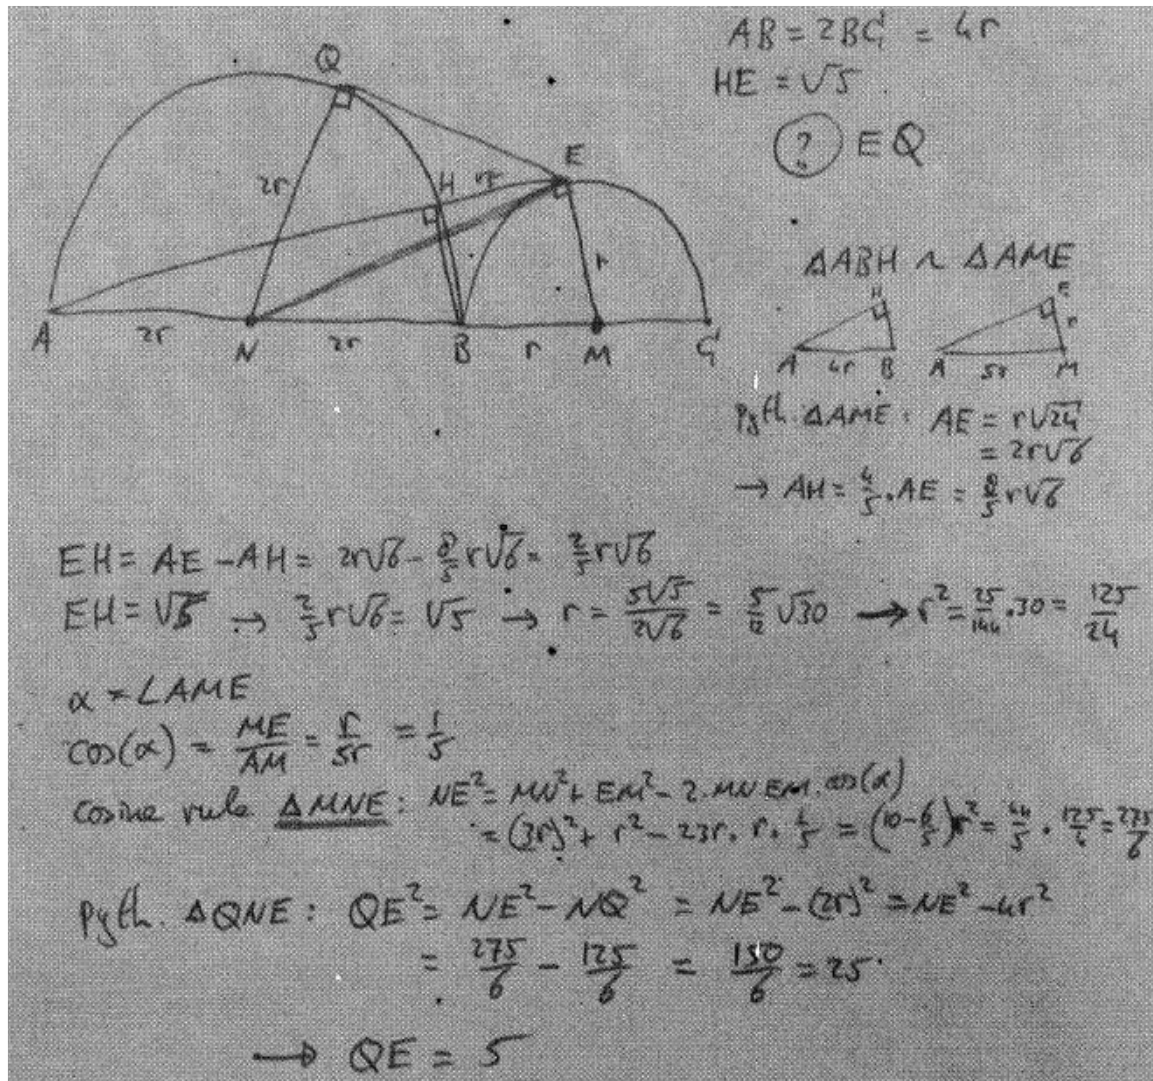 AB = 2BG = 4r
HE = √5
? EQ
Q
E
H
2r
√5
r
A
2r
N
2r
B
r
M
G
ΔABH ~ ΔAME
H
E
r
A
4r
B
A
5r
M
Pyth. ΔAME: AE = r√24
= 2r√6
→ AH = 4/5 . AE = 8/5 r√6
EH = AE - AH = 2r√6 - 8/5 r√6 = 2/5 r√6
EH = √5 → 2/5 r√6 = √5 → r = 5√5/2√6 = 5/12 √30 → r² = 25/144 . 30 = 125/24
α = ∠AME
cos(α) = ME/AM = r/5r = 1/5
cosine rule ΔMNE: NE² = MN² + EM² - 2.MN.EM.cos(α)
= (3r)² + r² - 2.3r. r. 1/5 = (10 - 6/5)r² = 44/5 . 125/4 = 275/6
pyth. ΔQNE: QE² = NE² - NQ² = NE² - (2r)² = NE² - 4r²
= 275/6 - 125/6 = 150/6 = 25
→ QE = 5